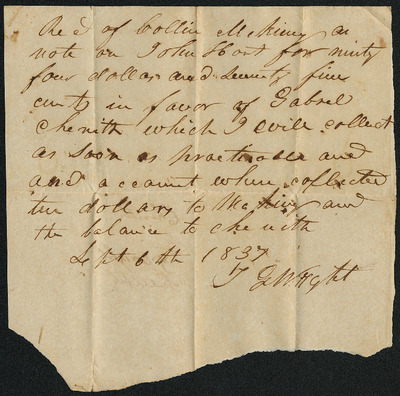 Rec'd of Collin McKiney a
note on John Hart for ninty
four dollars and seventy five
cents in favor of Gabrel
Chenith which I will collect
as soon as practicable and
and account when collected
ten dollars to McKiney and
the balance to Chenith
Sept 6th 1837
G W Wright